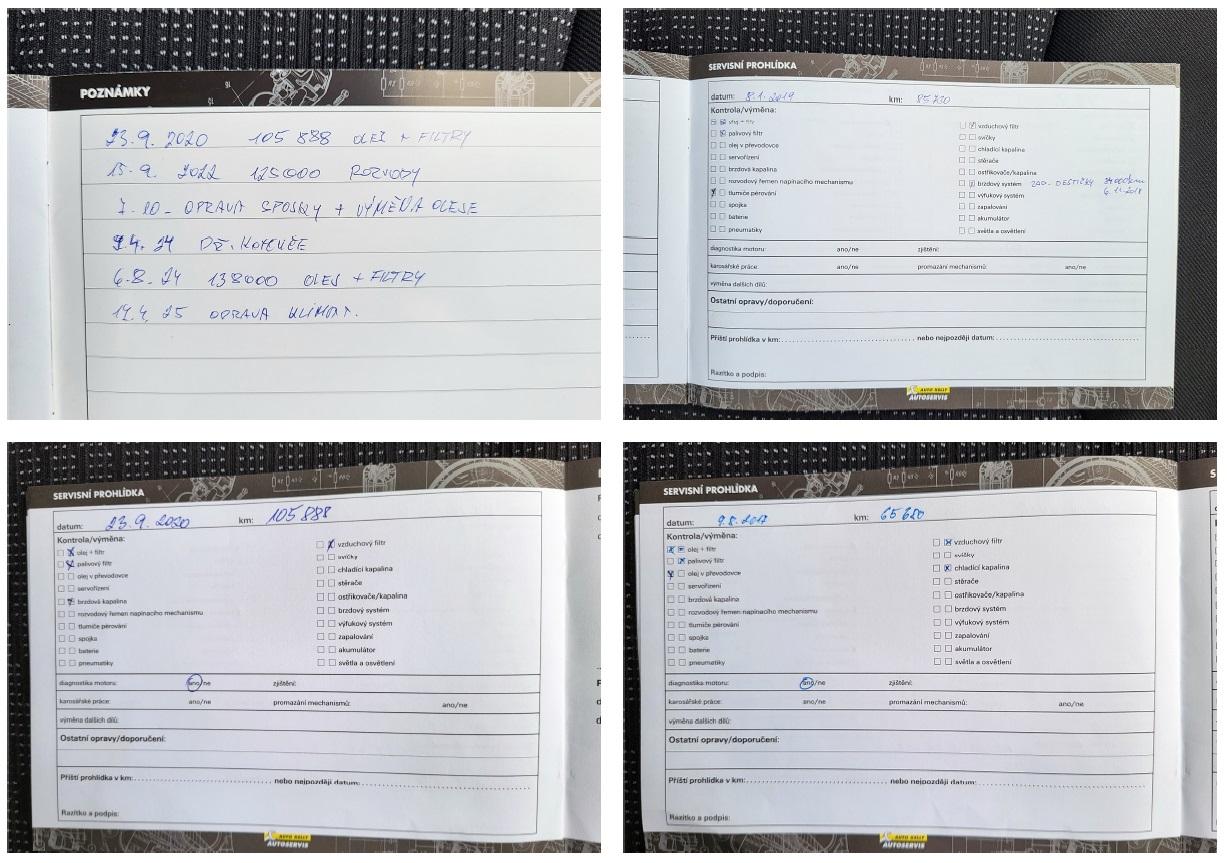 POZNÁMKY
23.9. 2020 105 888 OLEJ + FILTRY
15.9. 2022 125000 ROZVODY
7.10- OPRAVA SPOJKY + VÝMĚNA OLEJE
9.4. 24
6.8. 24 138000 OLEJ + FILTRY
14.4. 25 OPRAVA
SERVISNÍ PROHLÍDKA
datum: 8.1.2019 km: 85730
Kontrola/výměna:
olej + filtr vzduchový filtr
palivový filtr svíčky
olej v převodovce chladící kapalina
servořízení stěrače
brzdová kapalina ostřikovače/kapalina
rozvodový řemen napínacího mechanismu brzdový systém ZAD. DESTIČKY
tlumiče pérování výfukový systém
spojka zapalování
baterie akumulátor
pneumatiky světla a osvětlení
diagnostika motoru: ano/ne zjištění:
karosářské práce: ano/ne promazání mechanismů: ano/ne
výměna dalších dílů:
Ostatní opravy/doporučení:
Příští prohlídka v km: nebo nejpozději datum:
Razítko a podpis:
AUTO RALLY
AUTOSERVIS
SERVISNÍ PROHLÍDKA
datum: 23.9.2020 km: 105888
Kontrola/výměna:
olej + filtr vzduchový filtr
palivový filtr svíčky
olej v převodovce chladící kapalina
servořízení stěrače
brzdová kapalina ostřikovače/kapalina
rozvodový řemen napínacího mechanismu brzdový systém
tlumiče pérování výfukový systém
spojka zapalování
baterie akumulátor
pneumatiky světla a osvětlení
diagnostika motoru: ano/ne zjištění:
karosářské práce: ano/ne promazání mechanismů: ano/ne
výměna dalších dílů:
Ostatní opravy/doporučení:
Příští prohlídka v km: nebo nejpozději datum:
Razítko a podpis:
AUTO RALLY
AUTOSERVIS
SERVISNÍ PROHLÍDKA
datum: 9.8.2017 km: 65680
Kontrola/výměna:
olej + filtr vzduchový filtr
palivový filtr svíčky
olej v převodovce chladící kapalina
servořízení stěrače
brzdová kapalina ostřikovače/kapalina
rozvodový řemen napínacího mechanismu brzdový systém
tlumiče pérování výfukový systém
spojka zapalování
baterie akumulátor
pneumatiky světla a osvětlení
diagnostika motoru: ano/ne zjištění:
karosářské práce: ano/ne promazání mechanismů: ano/ne
výměna dalších dílů:
Ostatní opravy/doporučení:
Příští prohlídka v km: nebo nejpozději datum:
Razítko a podpis:
AUTO RALLY
AUTOSERVIS